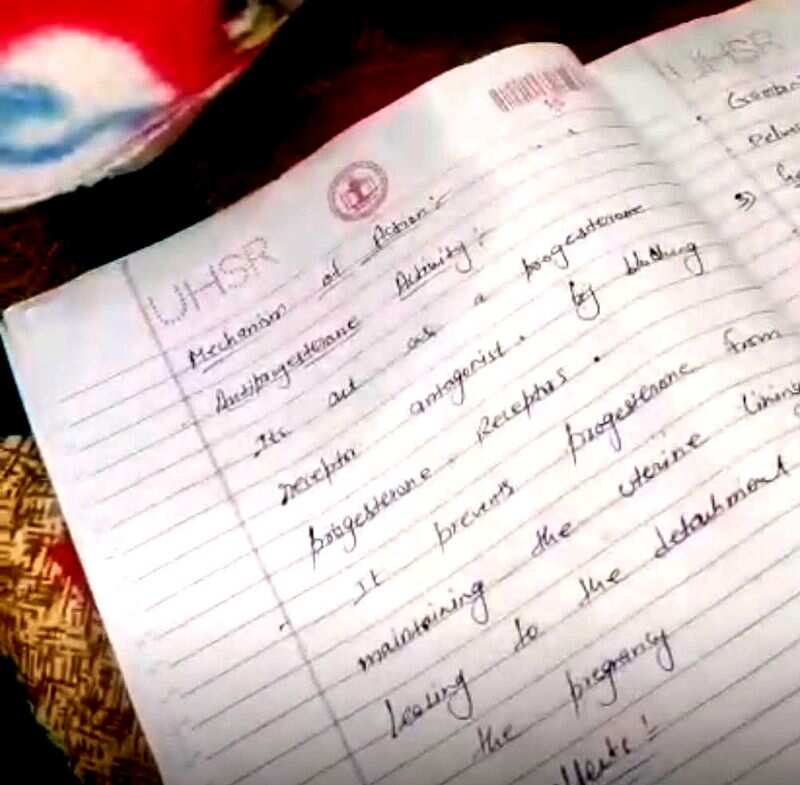 UHSR
Mechanism of Action :-
Antiprogesterone Activity :-
Its act as a progesterone
receptor antagonist. by blocking
progesterone Receptors.
It prevents progesterone from
maintaining the uterine lining
leaving to the detachment
the pregnancy
UHSR
3)